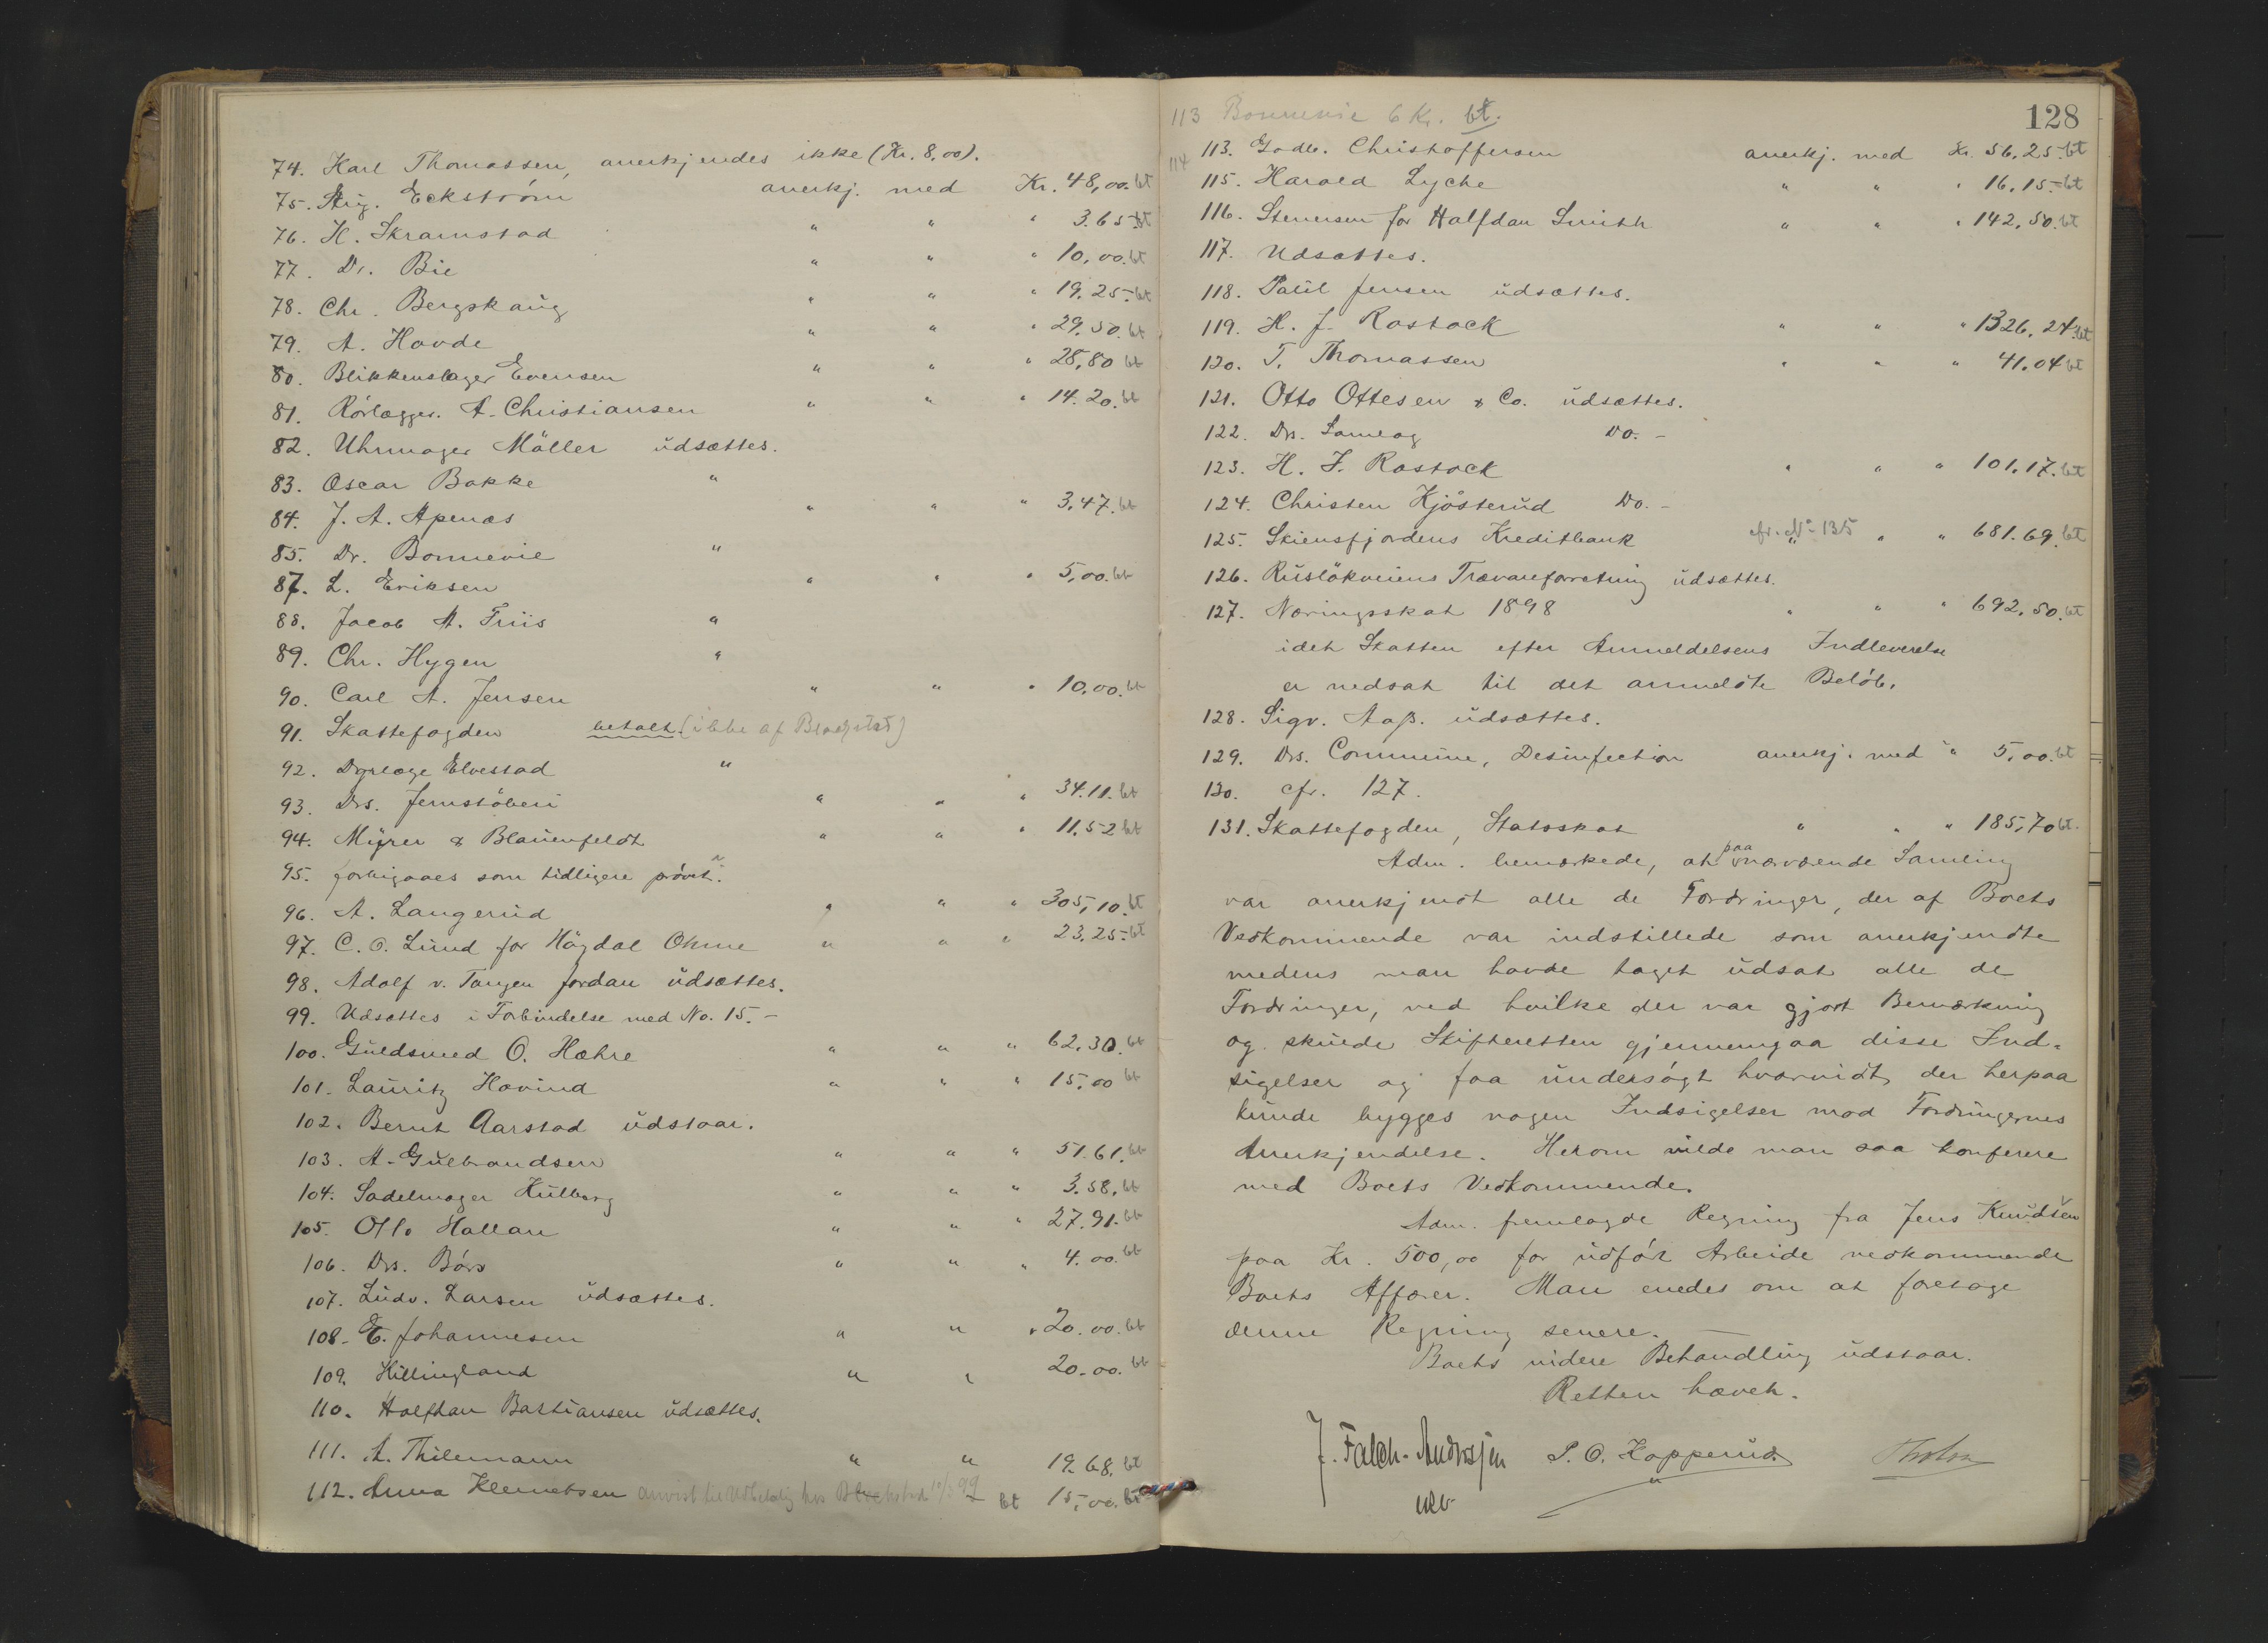 74. Karl Thomassen, anerkjendes ikke (Kr. 8,00).
75. Aug. Eckström anerkj. med Kr. 48,00. bt
76. H. Skramstad " " " 3.65 bt
77. Dr. Bie " " " 10,00. bt
78. Chr. Bergskaug " " " 19.25. bt
79. A. Hovde " " " 29.50. bt
80. Blikkenslager Evensen " " " 28,80 bt
81. Rörlægger A. Christiansen " " " 14.20. bt
82. Uhrmager Möller udsættes.
83. Oscar Bakke "
84. J. A. Apenæs " " " 3,47. bt
85. Dr. Bonnevie "
87. L. Eriksen " " " 5,00. bt
88. Jacob A. Friis "
89. Chr. Hygen "
90. Carl A. Jensen " " " 10,00. bt
91. Skattefogden betalt. (ikke af
92. Dyrlæge Elvestad "
93. Drs. Jernstöberi " " " 34.11. bt
94. Myrer & Blauenfeldt " " " 11.52 bt
95. forbigaaes som tidligere prövet.
96. A. Langerud " " " 305,10. bt
97. C. O. Lund for Hägdal Ohme " " " 23.25. bt
98. Adolf v. Tangen Jordan udsættes.
99. Udsættes i Forbindelse med No. 15. -
100. Guldsmed O. Hæhre " " " 62.30. bt
101. Lauritz Hovind " " " 15,00 bt
102. Bernt Aarstad udstaar.
103. A. Gulbrandsen " " " 51.61. bt
104. Sadelmager Hulberg " " " 3.58. bt
105. Otto Hallan " " " 27.91. bt
106. Drs. Börs " " " 4.00. bt
107. Ludv. Larsen udsættes.
108. E. Johannesen " " " 20.00. bt
109. Killingland " " 20.00. bt
110. Halfdan Bastiansen udsættes.
111. A. Thilemann " " 19.68. bt
112. Anna Klemetsen anvist til Udbetaling hos 10/3 99 bt 15,00. bt
128
113 Bonnevie 6 Kr. bt.
113. Gudb. Christoffersen anerkj. med Kr. 56,25. bt
114
115. Harald Lyche " " " 16,15. bt
116. Stenersen for Halfdan Smith " " " 142,50. bt
117. Udsættes.
118. Paul Jensen udsættes.
119. H. J. Rastock " " " 1326,24. bt
120. T. Thomassen " " " 41.04 bt
121. Otto Ottesen & Co. udsættes.
122. Drs. Samlag Do. -
123. H. J. Rastock " " " 101.17. bt
124. Christen Kjösterud Do. -
125. Skiensfjordens Kreditbank cfr. No 135 " " " 681.69. bt
126. Ruslökveiens Trævareforretning udsættes.
127. Næringsskat 1898 " " " 692,50. bt
idet Skatten efter Anmeldelsens Indleverelse
er nedsat til det anmeldte Belöb.
128. Sigv. Aaß. udsættes.
129. Drs. Commune, Desinfection anerkj. med " 5,00. bt
130. cfr. 127.
131. Skattefogden, Statsskat " " " 185,70 bt.
Adm. bemærkede, at paa nærværende Samling
var anerkjendt alle de Fordringer, der af Boets
Vedkommende var indstillede som anerkjendte
medens man havde taget udsat alle de
Fordringer, ved hvilke der var gjort Bemærkning
og skulde Skifteretten gjennemgaa disse Ind-
sigelser og faa undersögt hvorvidt der herpaa
kunde bygges nogen Indsigelser mod Fordringernes
Anerkjendelse. Herom vilde man saa konferere
med Boets Vedkommende.
Adm. fremlagde Regning fra Jens Knudsen
paa Kr. 500,00 for udfört Arbeide vedkommende
Boets Affærer. Man enedes om at foretage
denne Regning senere. -
Boets videre Behandling udstaar.
Retten hævet.
J. Falch-Andersjen S. O. Kopperud.